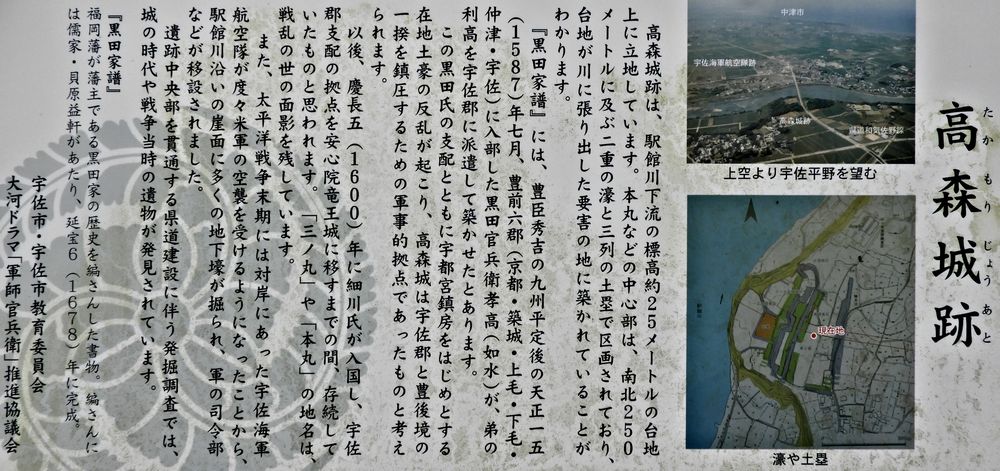 高森城跡
たかもりじょうあと
中津市
宇佐海軍航空隊跡
高森城跡
県道和気佐野線
上空より宇佐平野を望む
現在地
濠や土塁
高森城跡は、駅館川下流の標高約25メートルの台地
上に立地しています。本丸などの中心部は、南北250
メートルに及ぶ二重の濠と三列の土塁で区画されており、
台地が川に張り出した要害の地に築かれていることが
わかります。
『黒田家譜』には、豊臣秀吉の九州平定後の天正一五
(1587)年七月、豊前六郡(京都・築城・上毛・下毛・
仲津・宇佐)に入部した黒田官兵衛孝高(如水)が、弟の
利高を宇佐郡に派遣して築かせたとあります。
この黒田氏の支配とともに宇都宮鎮房をはじめとする
在地土豪の反乱が起こり、高森城は宇佐郡と豊後境の
一揆を鎮圧するための軍事的拠点であったものと考え
られます。
以後、慶長五(1600)年に細川氏が入国し、宇佐
郡支配の拠点を安心院竜王城に移すまでの間、存続して
いたものと思われます。「三ノ丸」や「本丸」の地名は、
戦乱の世の面影を残しています。
また、太平洋戦争末期には対岸にあった宇佐海軍
航空隊が度々米軍の空襲を受けるようになったことから、
駅館川沿いの崖面に多くの地下壕が掘られ、軍の司令部
などが移設されました。
遺跡中央部を貫通する県道建設に伴う発掘調査では、
城の時代や戦争当時の遺物が発見されています。
『黒田家譜』
福岡藩が藩主である黒田家の歴史を編さんした書物。編さんに
は儒家・貝原益軒があたり、延宝6(1678)年に完成。
宇佐市・宇佐市教育委員会
大河ドラマ「軍師官兵衛」推進協議会